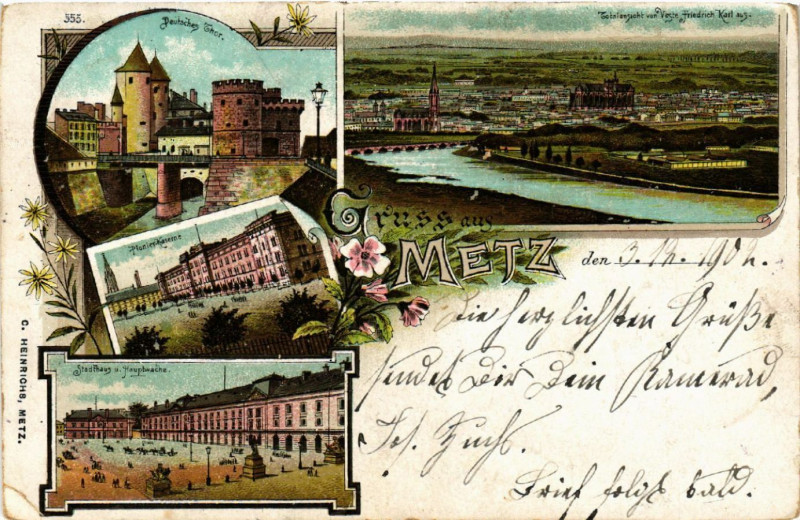 355.
Deutsches Thor.
Totalansicht von Veste Friedrich Karl aus.
Pionierkaserne
Gruss aus
METZ
den 3. 12. 1902.
Die herzlichsten Grüße
sendet Dir Dein Kamerad,
Jos. Fuchs.
Brief folgt bald.
Stadthaus u. Hauptwache.
C. HEINRICHS, METZ.